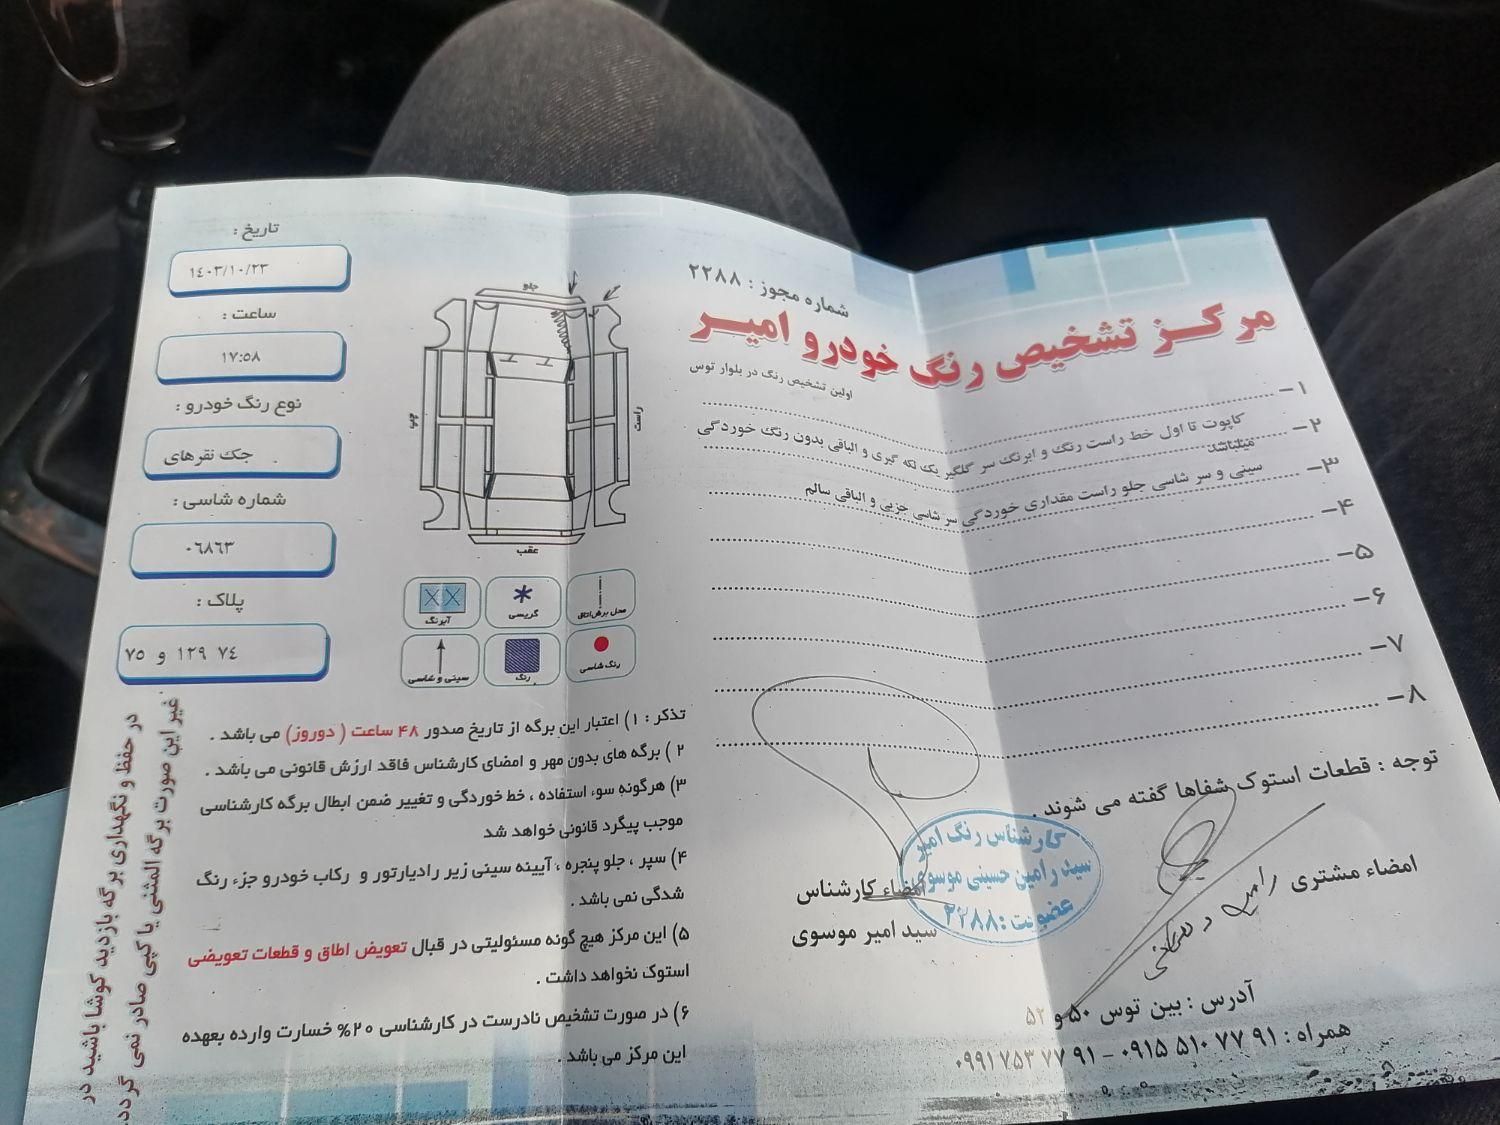 مرکز تشخیص رنگ خودرو امیر
شماره مجوز : ۲۲۸۸
اولین تشخیص رنگ در بلوار توس
۱-
کاپوت تا اول خط راست رنگ و ابرنگ سر گلگیر یک لکه گیری و الباقی بدون رنگ خوردگی
۲-
میباشد
سینی و سر شاسی جلو راست مقداری خوردگی سر شاسی جزیی و الباقی سالم
۳-
۴-
۵-
۶-
۷-
۸-
توجه : قطعات استوک شفاها گفته می شوند .
امضاء مشتری
امضاء کارشناس
سید امیر موسوی
کارشناس رنگ امیر
سید رامین حسینی موسوی
عضویت : ۲۲۸۸
آدرس : بین توس ۵۰ و ۵۲
همراه : ۰۹۱۵ ۵۱۰ ۷۷ ۹۱ - ۰۹۹۱ ۷۵۳ ۷۷ ۹۱
جلو
راست
چپ
عقب
محل برش اتاق
گریسی
آبرنگ
رنگ شاسی
رنگ
سینی و شاسی
تاریخ :
۱٤۰۳/۱۰/۲۳
ساعت :
۱۷:۵۸
نوع رنگ خودرو :
جک نقرهای
شماره شاسی :
۰٦۸٦۳
پلاک :
۷۵ و ۱۲۹ ۷٤
تذکر : ۱) اعتبار این برگه از تاریخ صدور ۴۸ ساعت ( دوروز) می باشد .
۲ ) برگه های بدون مهر و امضای کارشناس فاقد ارزش قانونی می باشد .
۳) هرگونه سوء استفاده ، خط خوردگی و تغییر ضمن ابطال برگه کارشناسی
موجب پیگرد قانونی خواهد شد
۴) سپر ، جلو پنجره ، آیینه سینی زیر رادیارتور و رکاب خودرو جزء رنگ
شدگی نمی باشد .
۵) این مرکز هیچ گونه مسئولیتی در قبال تعویض اطاق و قطعات تعویضی
استوک نخواهد داشت .
۶) در صورت تشخیص نادرست در کارشناسی ۲۰% خسارت وارده بعهده
این مرکز می باشد .
در حفظ و نگهداری برگه بازدید کوشا باشید در
غیر این صورت برگه المثنی یا کپی صادر نمی گردد.